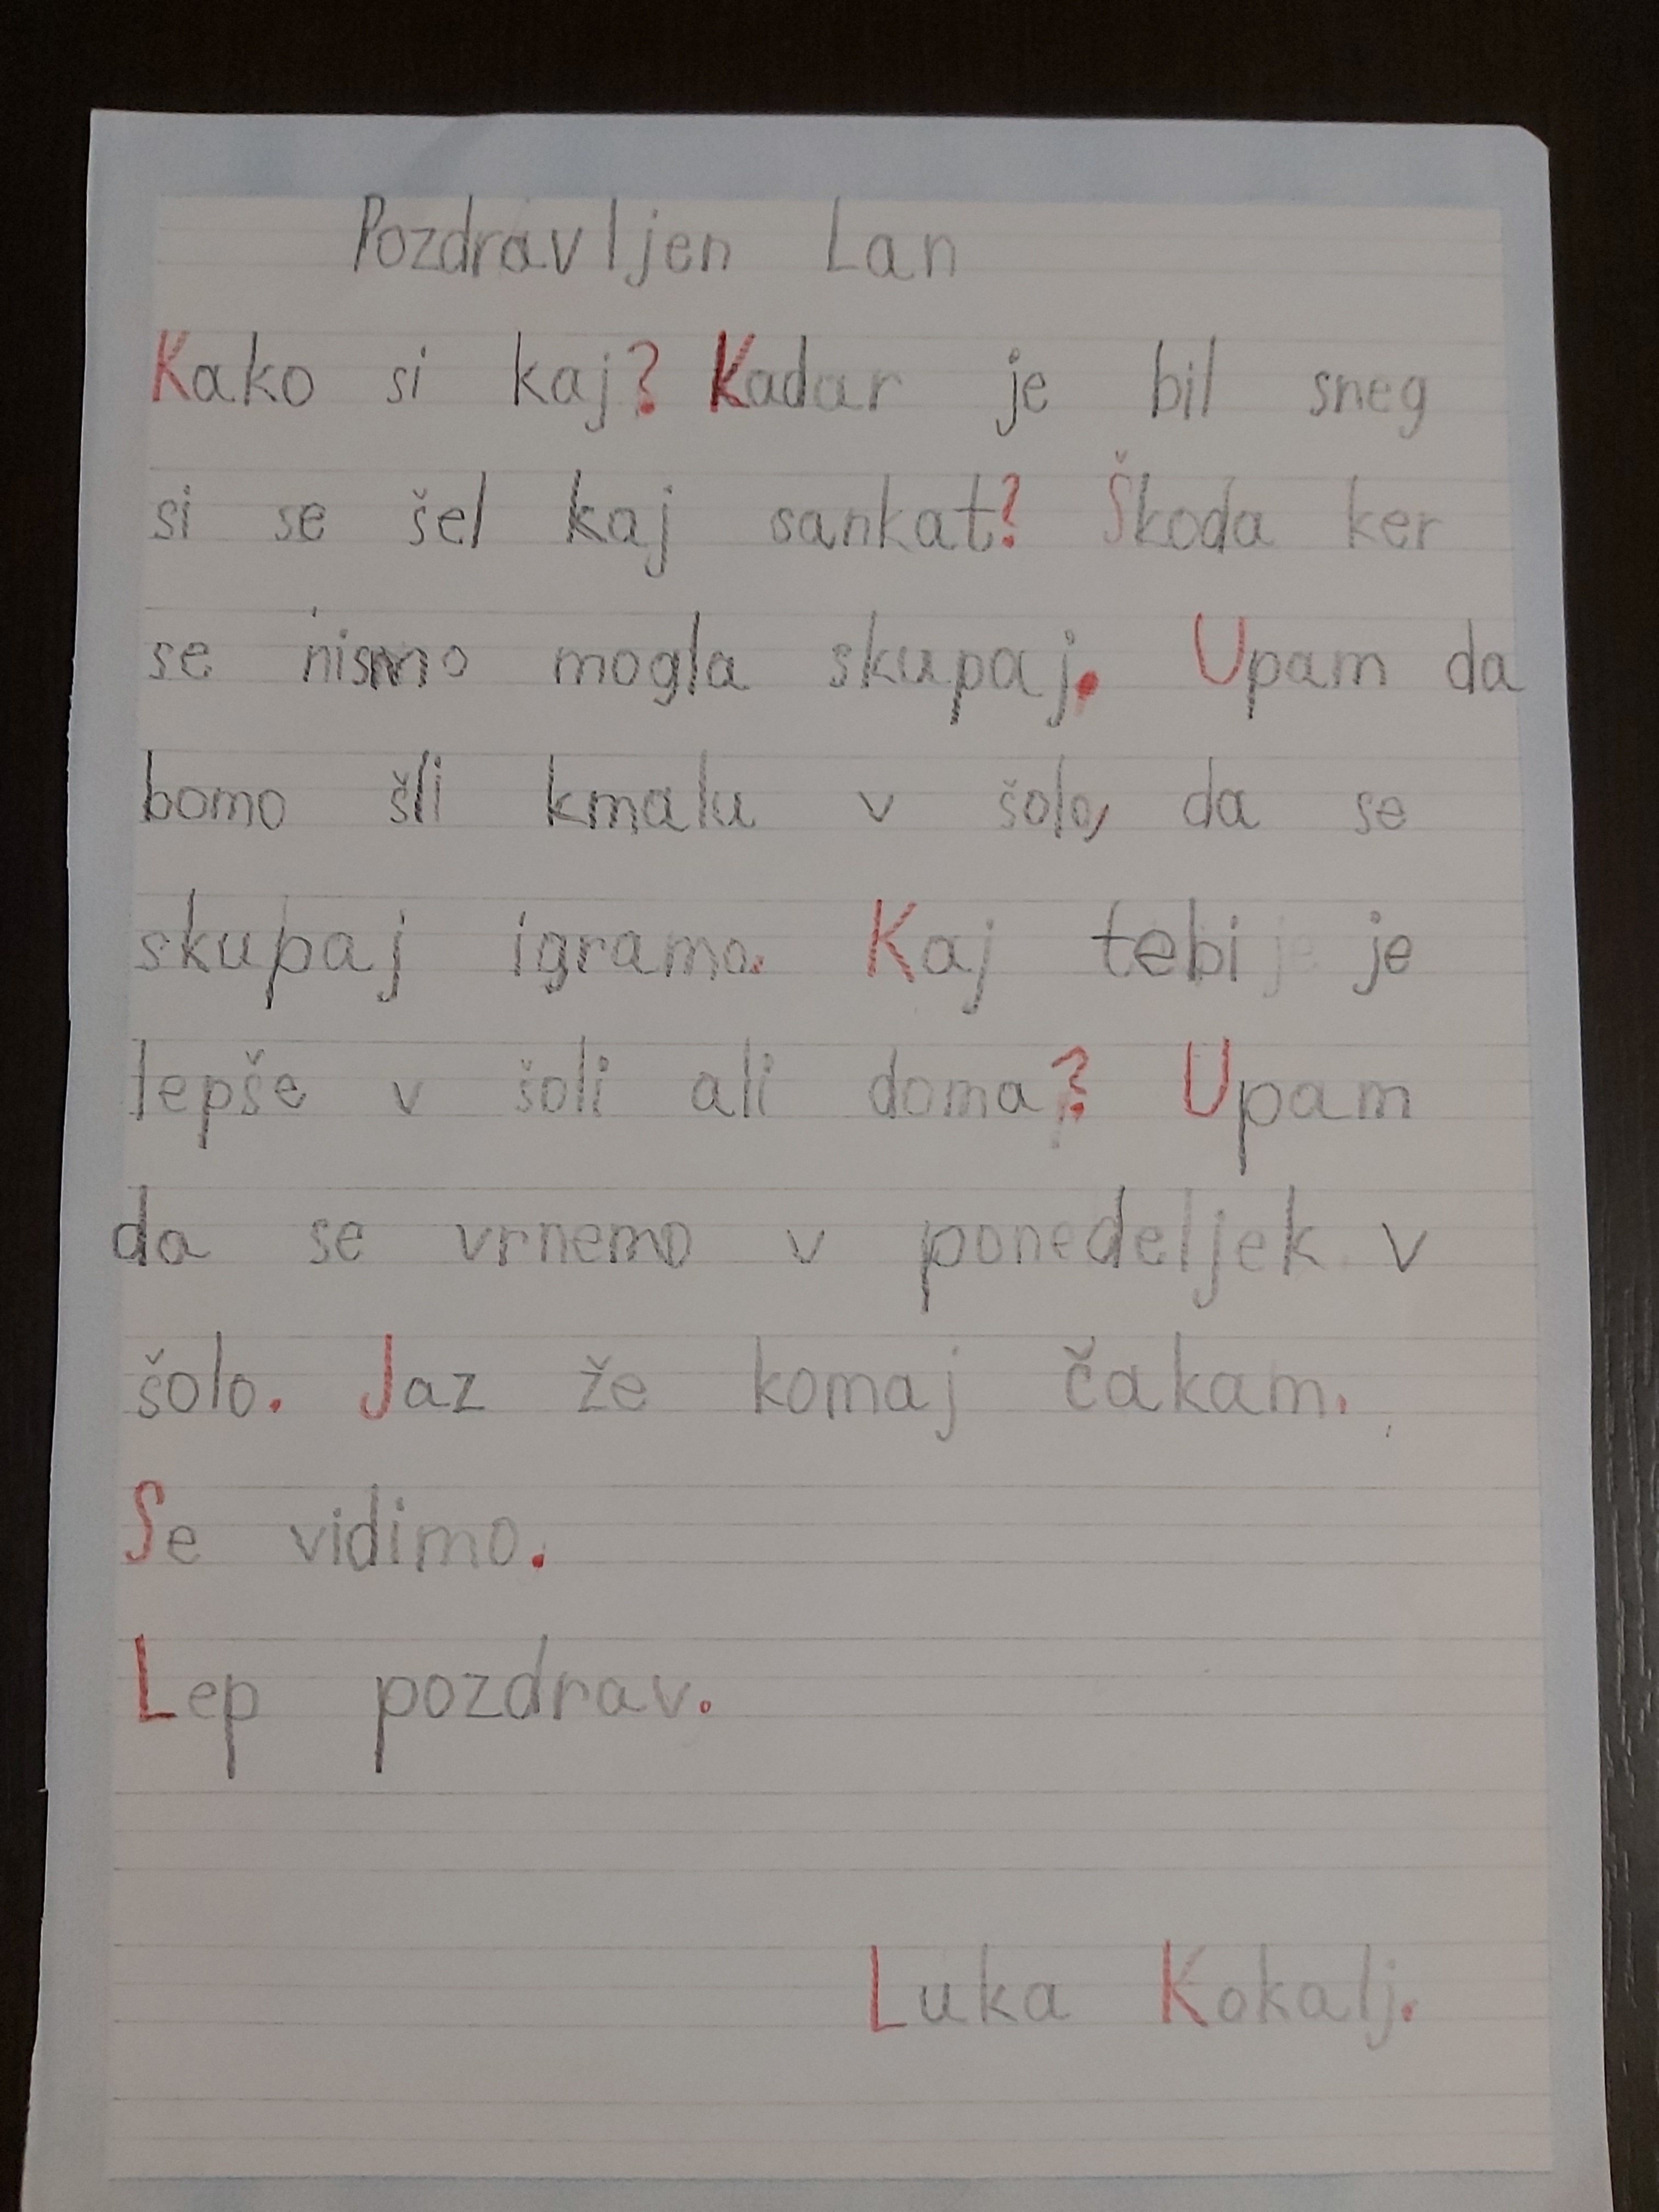 Pozdravljen Lan
Kako si kaj? Kadar je bil sneg
si se šel kaj sankat? Škoda ker
se nismo mogla skupaj. Upam da
bomo šli kmalu v šolo, da se
skupaj igramo. Kaj tebi je
lepše v šoli ali doma? Upam
da se vrnemo v ponedeljek v
šolo. Jaz že komaj čakam.
Se vidimo.
Lep pozdrav.
Luka Kokalj.